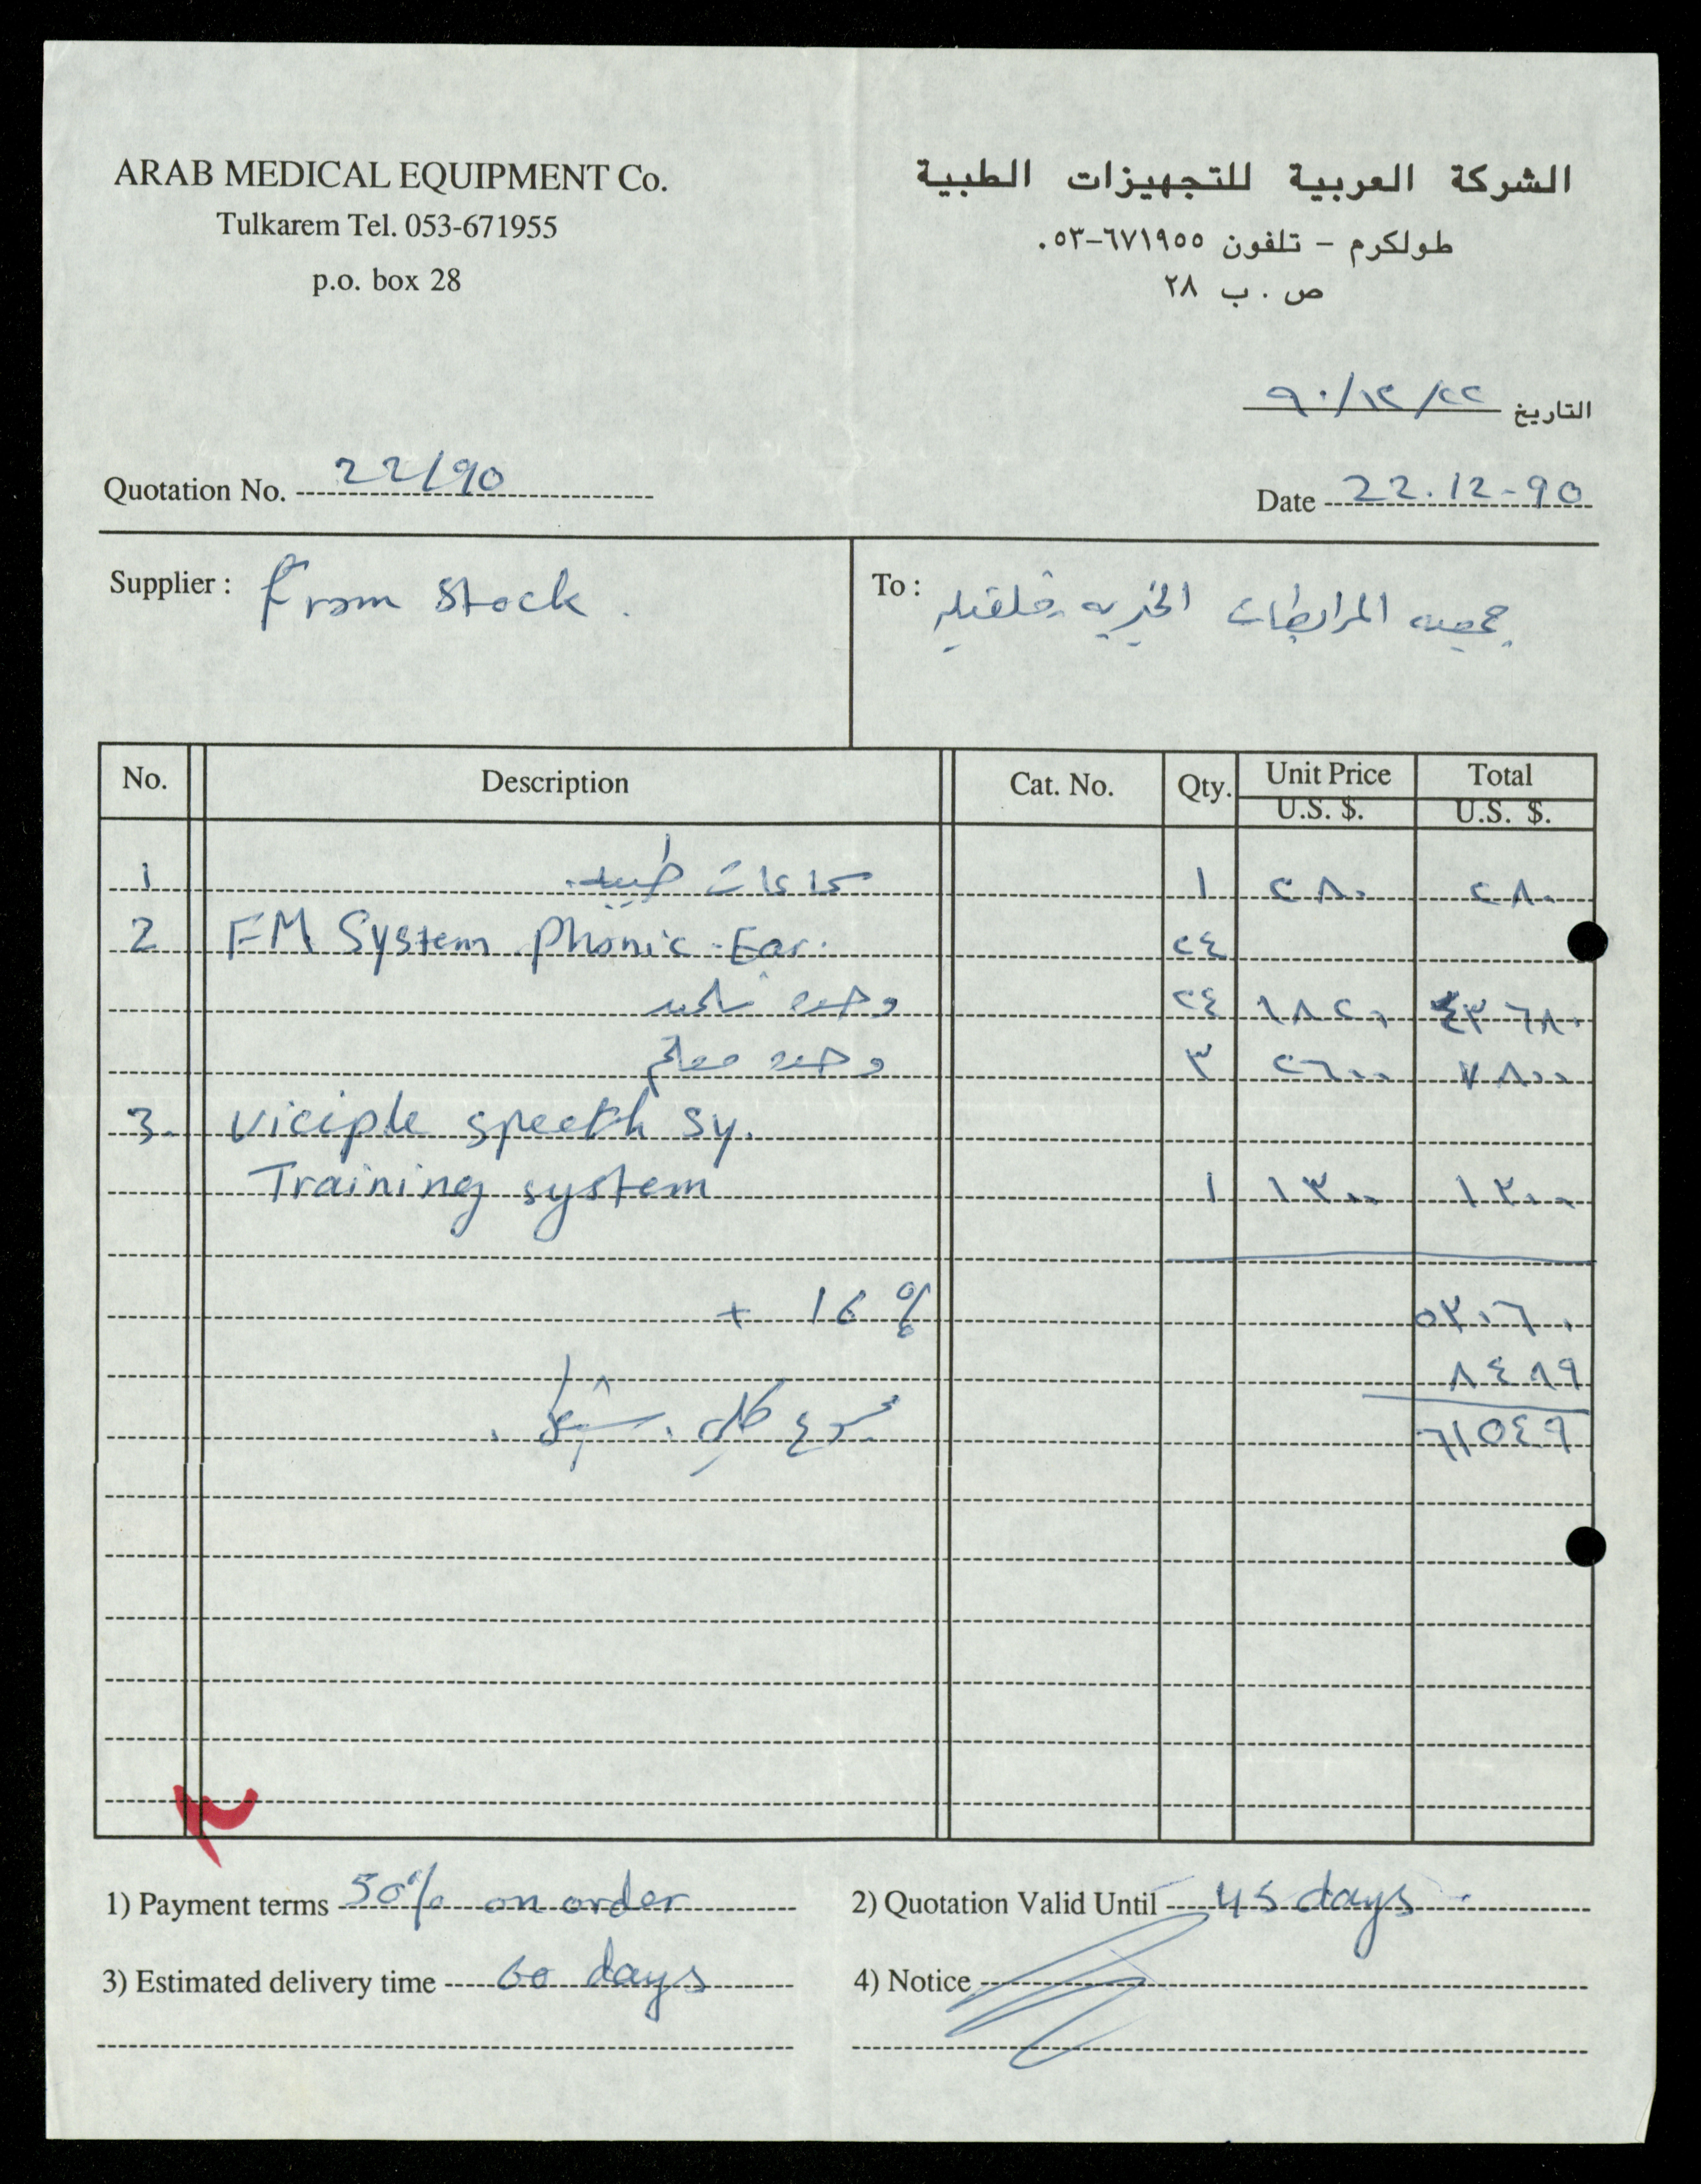 ARAB MEDICAL EQUIPMENT Co.
Tulkarem Tel. 053-671955
p.o. box 28
الشركة العربية للتجهيزات الطبية
طولكرم – تلفون ٦٧١٩٥٥-٠٥٣
ص . ب ٢٨
التاريخ ٩٠/١٢/٢٢
Quotation No. 22/90
Date 22.12-90
Supplier : From stock .
To : جمعيه المرابطات الخيريه قلقيليه
No. Description Cat. No. Qty. Unit Price U.S. $. Total U.S. $.
1 سماعات طبيه. ١ ٢٨٠ ٢٨٠
2 FM System Phonic Ear. ٢٤
وحده تلميذ ٢٤ ١٨٢٠ ٤٣٦٨٠
وحده معلم ٣ ٢٦٠٠ ٧٨٠٠
3. Viciple speech sy.
Training system ١ ١٣٠٠ ١٣٠٠
+ 16 % ٥٣٠٦٠
٨٤٨٩
مجموع كلي . شيكل . ٦١٥٤٩
٢
1) Payment terms 50% on order
2) Quotation Valid Until 45 days
3) Estimated delivery time 60 days
4) Notice